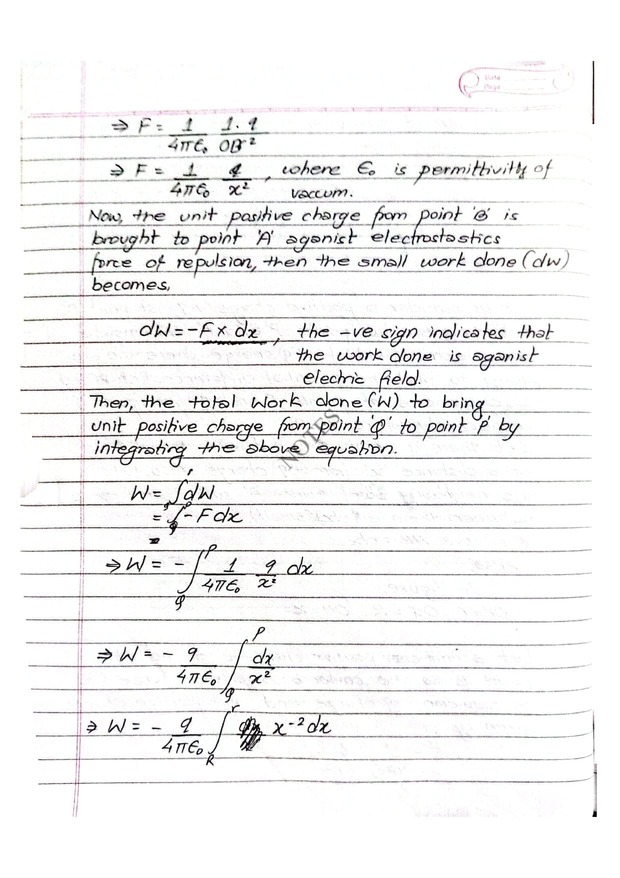 Date
Page
⇒ F = 1/4πε₀ 1·q/OB²
⇒ F = 1/4πε₀ q/x², where ε₀ is permittivity of
vaccum.
Now, the unit positive charge from point 'B' is
brought to point 'A' aganist electrostastics
force of repulsion, then the small work done (dw)
becomes,
dW = -F × dx, the -ve sign indicates that
the work done is aganist
electric field.
Then, the total Work done (W) to bring
unit positive charge from point 'Q' to point 'P' by
integrating the above equation.
NOTES
W = ∫dW
= ∫_Q^P -Fdx
⇒ W = - ∫_Q^P 1/4πε₀ q/x² dx
⇒ W = - q/4πε₀ ∫_Q^P dx/x²
⇒ W = - q/4πε₀ ∫_R^r x⁻² dx